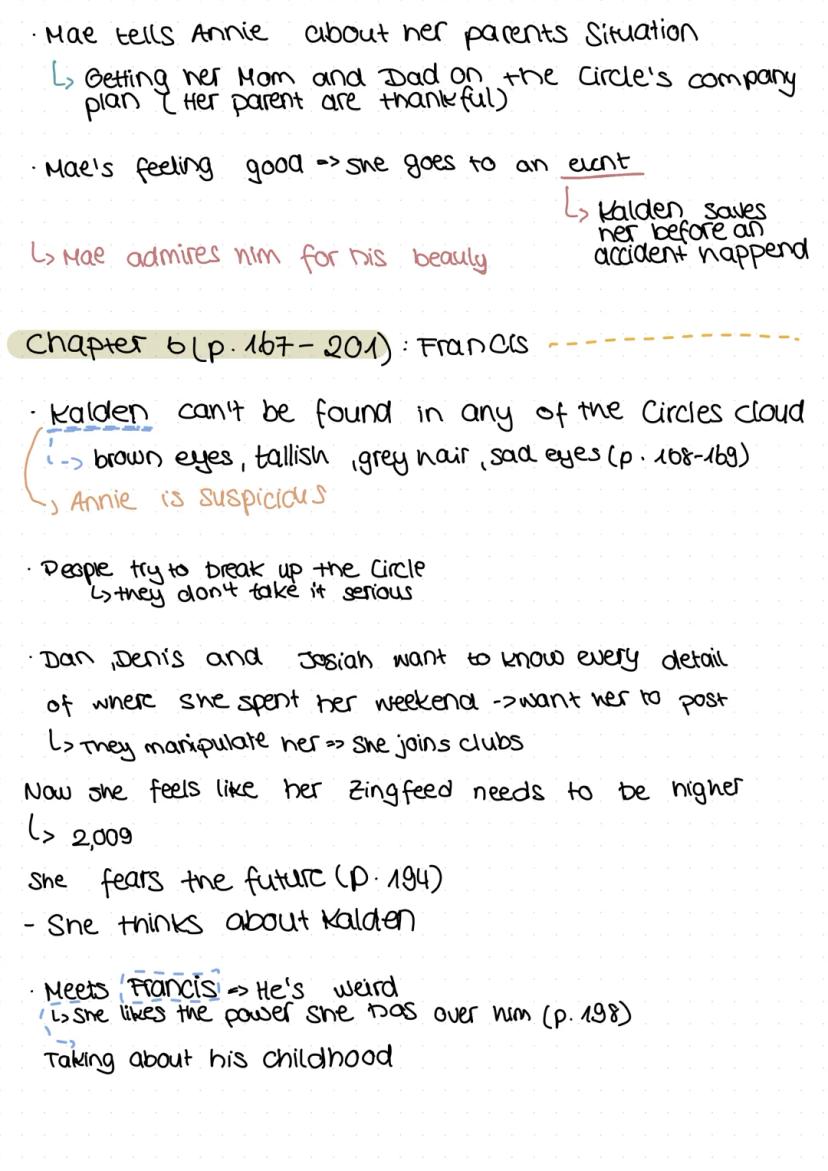 · Mae tells Annie about her parents Situation
↳ Getting her Mom and Dad on the Circle's company
plan ( Her parent are thankful)
· Mae's feeling good => she goes to an event
↳ Kalden saves
her before an
accident happend
↳ Mae admires him for his beauly
Chapter 6 (p. 167 - 201) : Francis
· Kalden can't be found in any of the Circles cloud
-> brown eyes, tallish, grey hair, sad eyes (p. 168-169)
↳ Annie is suspicious
· People try to break up the Circle
↳ they don't take it serious
· Dan, Denis and Josiah want to know every detail
of where she spent her weekend -> want her to post
↳ They manipulate her => she joins clubs
Now she feels like her Zingfeed needs to be higher
↳ 2,009
She fears the future (p. 194)
- She thinks about Kalden
· Meets Francis => He's weird
↳ She likes the power she has over him (p. 198)
->
Taking about his childhood